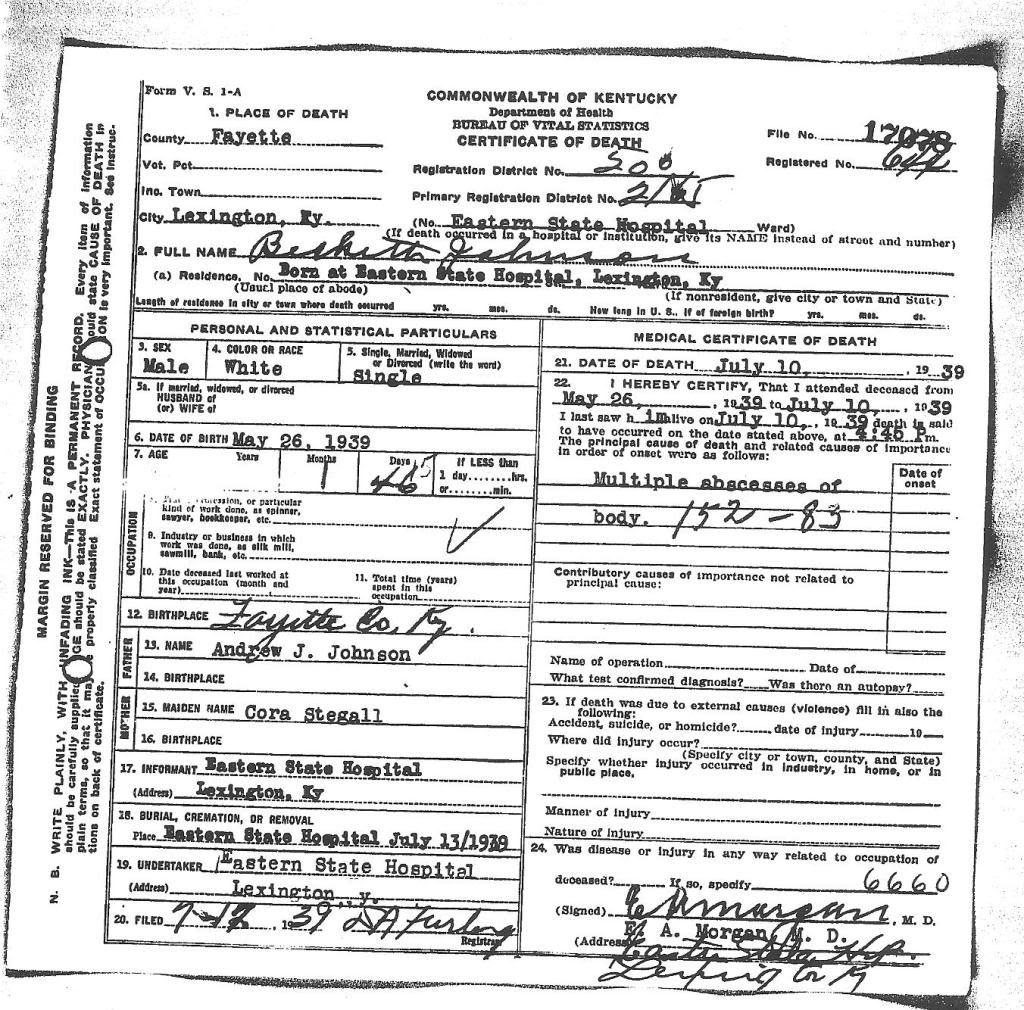 Form V. S. 1-A
1. PLACE OF DEATH
County Fayette
Vot. Pct.
Inc. Town
City Lexington, Ky.
COMMONWEALTH OF KENTUCKY
Department of Health
BUREAU OF VITAL STATISTICS
CERTIFICATE OF DEATH
File No. 17078
Registered No.
Registration District No.
Primary Registration District No.
(No. Eastern State Hospital Ward)
(If death occurred in a hospital or institution, give its NAME instead of street and number)
2. FULL NAME Johnson
(a) Residence, No. Born at Eastern State Hospital, Lexington, Ky
(Usual place of abode) (If nonresident, give city or town and State)
Length of residence in city or town where death occurred yrs. mos. ds. How long in U. S., if of foreign birth? yrs. mos. ds.
PERSONAL AND STATISTICAL PARTICULARS
3. SEX
Male
4. COLOR OR RACE
White
5. Single, Married, Widowed
or Divorced (write the word)
Single
5a. If married, widowed, or divorced
HUSBAND of
(or) WIFE of
6. DATE OF BIRTH May 26, 1939
7. AGE Years Months Days If LESS than
1 1 day........hrs.
or........min.
kind of work done, as spinner,
sawyer, bookkeeper, etc.
9. Industry or business in which
work was done, as silk mill,
sawmill, bank, etc.
10. Date deceased last worked at
this occupation (month and
year)
11. Total time (years)
spent in this
occupation
OCCUPATION
12. BIRTHPLACE Fayette Co, Ky.
FATHER
13. NAME Andrew J. Johnson
14. BIRTHPLACE
MOTHER
15. MAIDEN NAME Cora Stegall
16. BIRTHPLACE
17. INFORMANT Eastern State Hospital
(Address) Lexington, Ky
18. BURIAL, CREMATION, OR REMOVAL
Place Eastern State Hospital July 13/1939
19. UNDERTAKER Eastern State Hospital
(Address) Lexington, y.
20. FILED 1939
Registrar
MEDICAL CERTIFICATE OF DEATH
21. DATE OF DEATH July 10, 1939
22. I HEREBY CERTIFY, That I attended deceased from
May 26, , 1939 to July 10, , 1939
I last saw h im alive on July 10, , 1939 death is said
to have occurred on the date stated above, at 4:46 Pm.
The principal cause of death and related causes of importance
in order of onset were as follows:
Date of
onset
Multiple abscesses of
body. 152-83
Contributory causes of importance not related to
principal cause:
Name of operation Date of
What test confirmed diagnosis? Was there an autopsy?
23. If death was due to external causes (violence) fill in also the
following:
Accident, suicide, or homicide? date of injury 19
Where did injury occur?
(Specify city or town, county, and State)
Specify whether injury occurred in industry, in home, or in
public place.
Manner of injury
Nature of injury
24. Was disease or injury in any way related to occupation of
deceased? If so, specify 6660
(Signed) E A Morgan, M. D.
E. A. Morgan, M. D.
(Address
Eastern State
MARGIN RESERVED FOR BINDING
N. B. WRITE PLAINLY, WITH UNFADING INK—THIS IS A PERMANENT RECORD. Every item of information
should be carefully supplied. AGE should be stated EXACTLY. PHYSICIAN should state CAUSE OF DEATH in
plain terms, so that it may be properly classified. Exact statement of OCCUPATION is very important. See instruc-
tions on back of certificate.